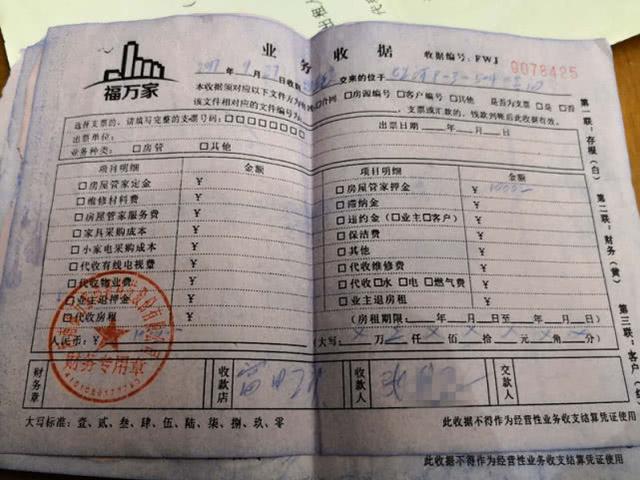 业务收据
收据编号：FWJ 0078425
福万家
2017年9月27日收到 交来的位于
本收据须对应以下文件方为有效 合同 □房源编号 □客户编号 □其他 是否为支票 □是 □否
该文件相对应的文件编号为 ，支票或汇款的，钱款到帐后此收据有效。
选择支票的，请填写完整的支票号码：□□□□□□□□
出票单位：
出票日期：＿年＿月＿日
业务种类：□房管 □其他
项目明细 金额 项目明细 金额
□房屋管家定金 ￥ □房屋管家押金 ￥
□维修材料费 ￥ □滞纳金 ￥
□房屋管家服务费 ￥ □违约金（□业主□客户） ￥
□家具采购成本 ￥ □保洁费 ￥
□小家电采购成本 ￥ □其他 ￥
□代收有线电视费 ￥ □代收维修费 ￥
□代收物业费 ￥ □代收□水 □电 □燃气费 ￥
□业主押金 ￥ □业主退房租 ￥
□代收房租 （房租期限：＿年＿月＿日至＿年＿月＿日）
人民币：￥ （大写：万 仟 佰 拾 元 角 分）
财务专用章
财务章 收款店 收款人 张 交款人
大写标准：壹、贰、叁、肆、伍、陆、柒、捌、玖、零
此收据不得作为经营性业务收支结算凭证使用
此收据不得作为经营性业务收支结算凭证使用
第一联：存根（白）
第二联：财务（黄）
第三联：客户